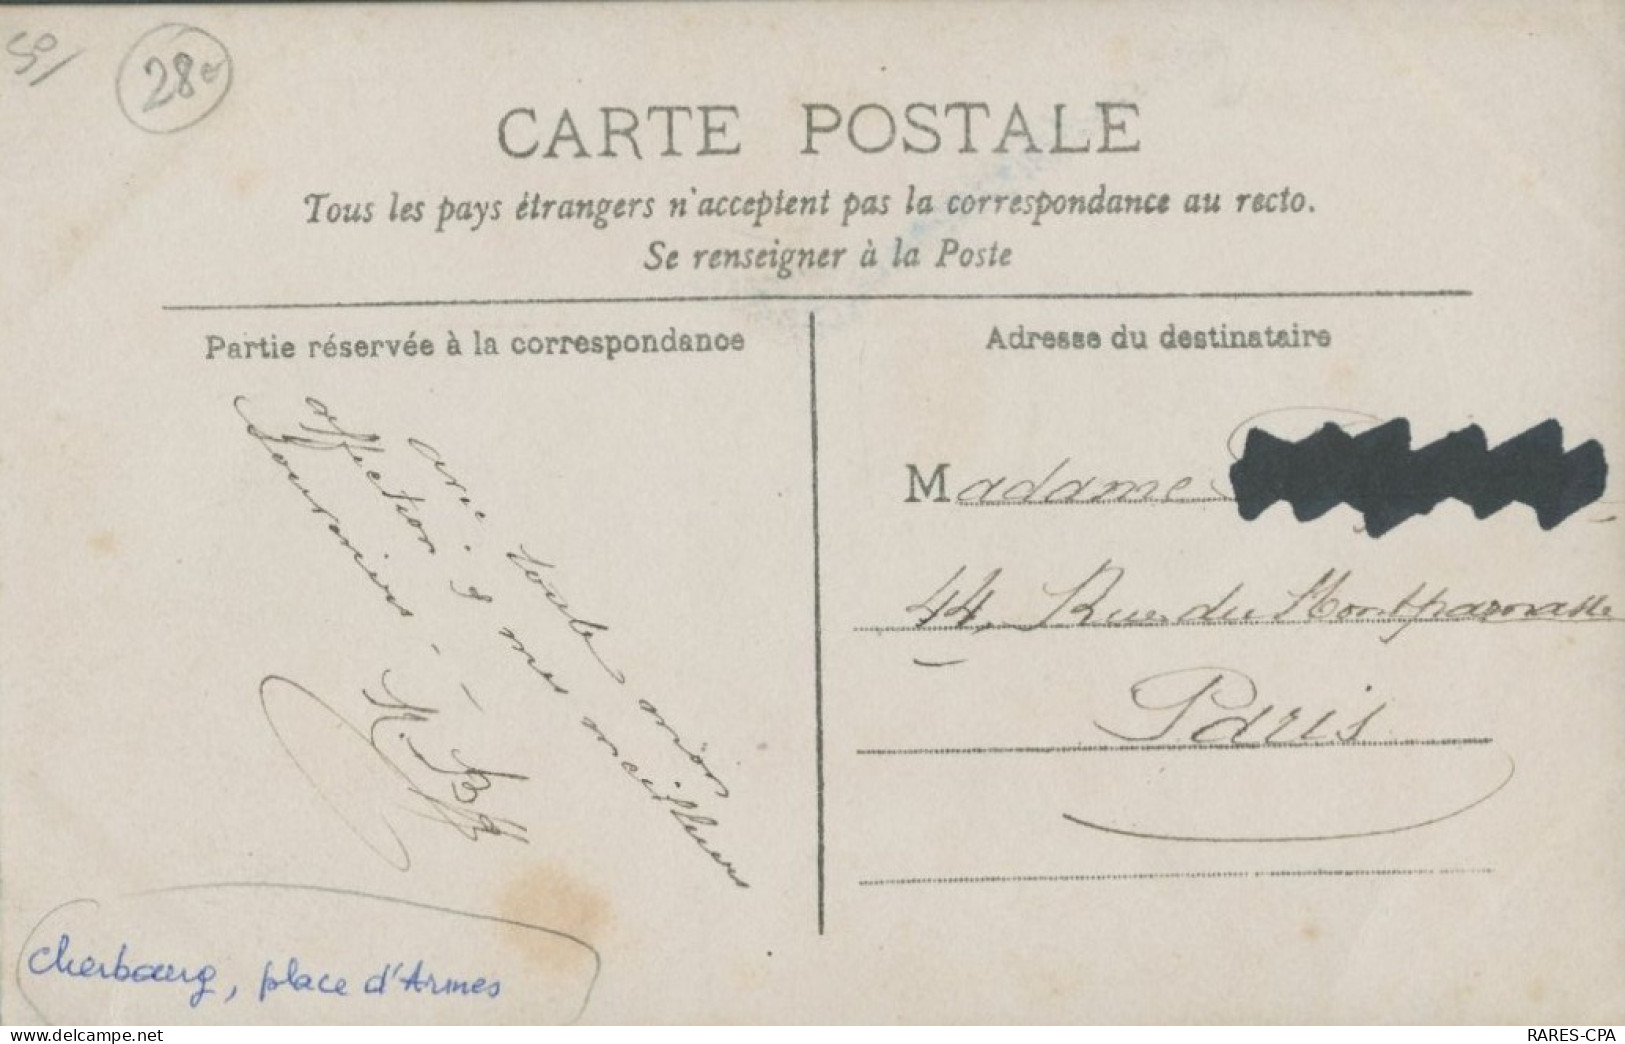 50/
28€
CARTE POSTALE
Tous les pays étrangers n'acceptent pas la correspondance au recto.
Se renseigner à la Poste
Partie réservée à la correspondance
Adresse du destinataire
avec toute mon
affection & mes meilleurs
souvenirs -
Madame
44, Rue du Montparnasse
Paris
Cherbourg, place d'Armes
delcampe.net
RARES-CPA